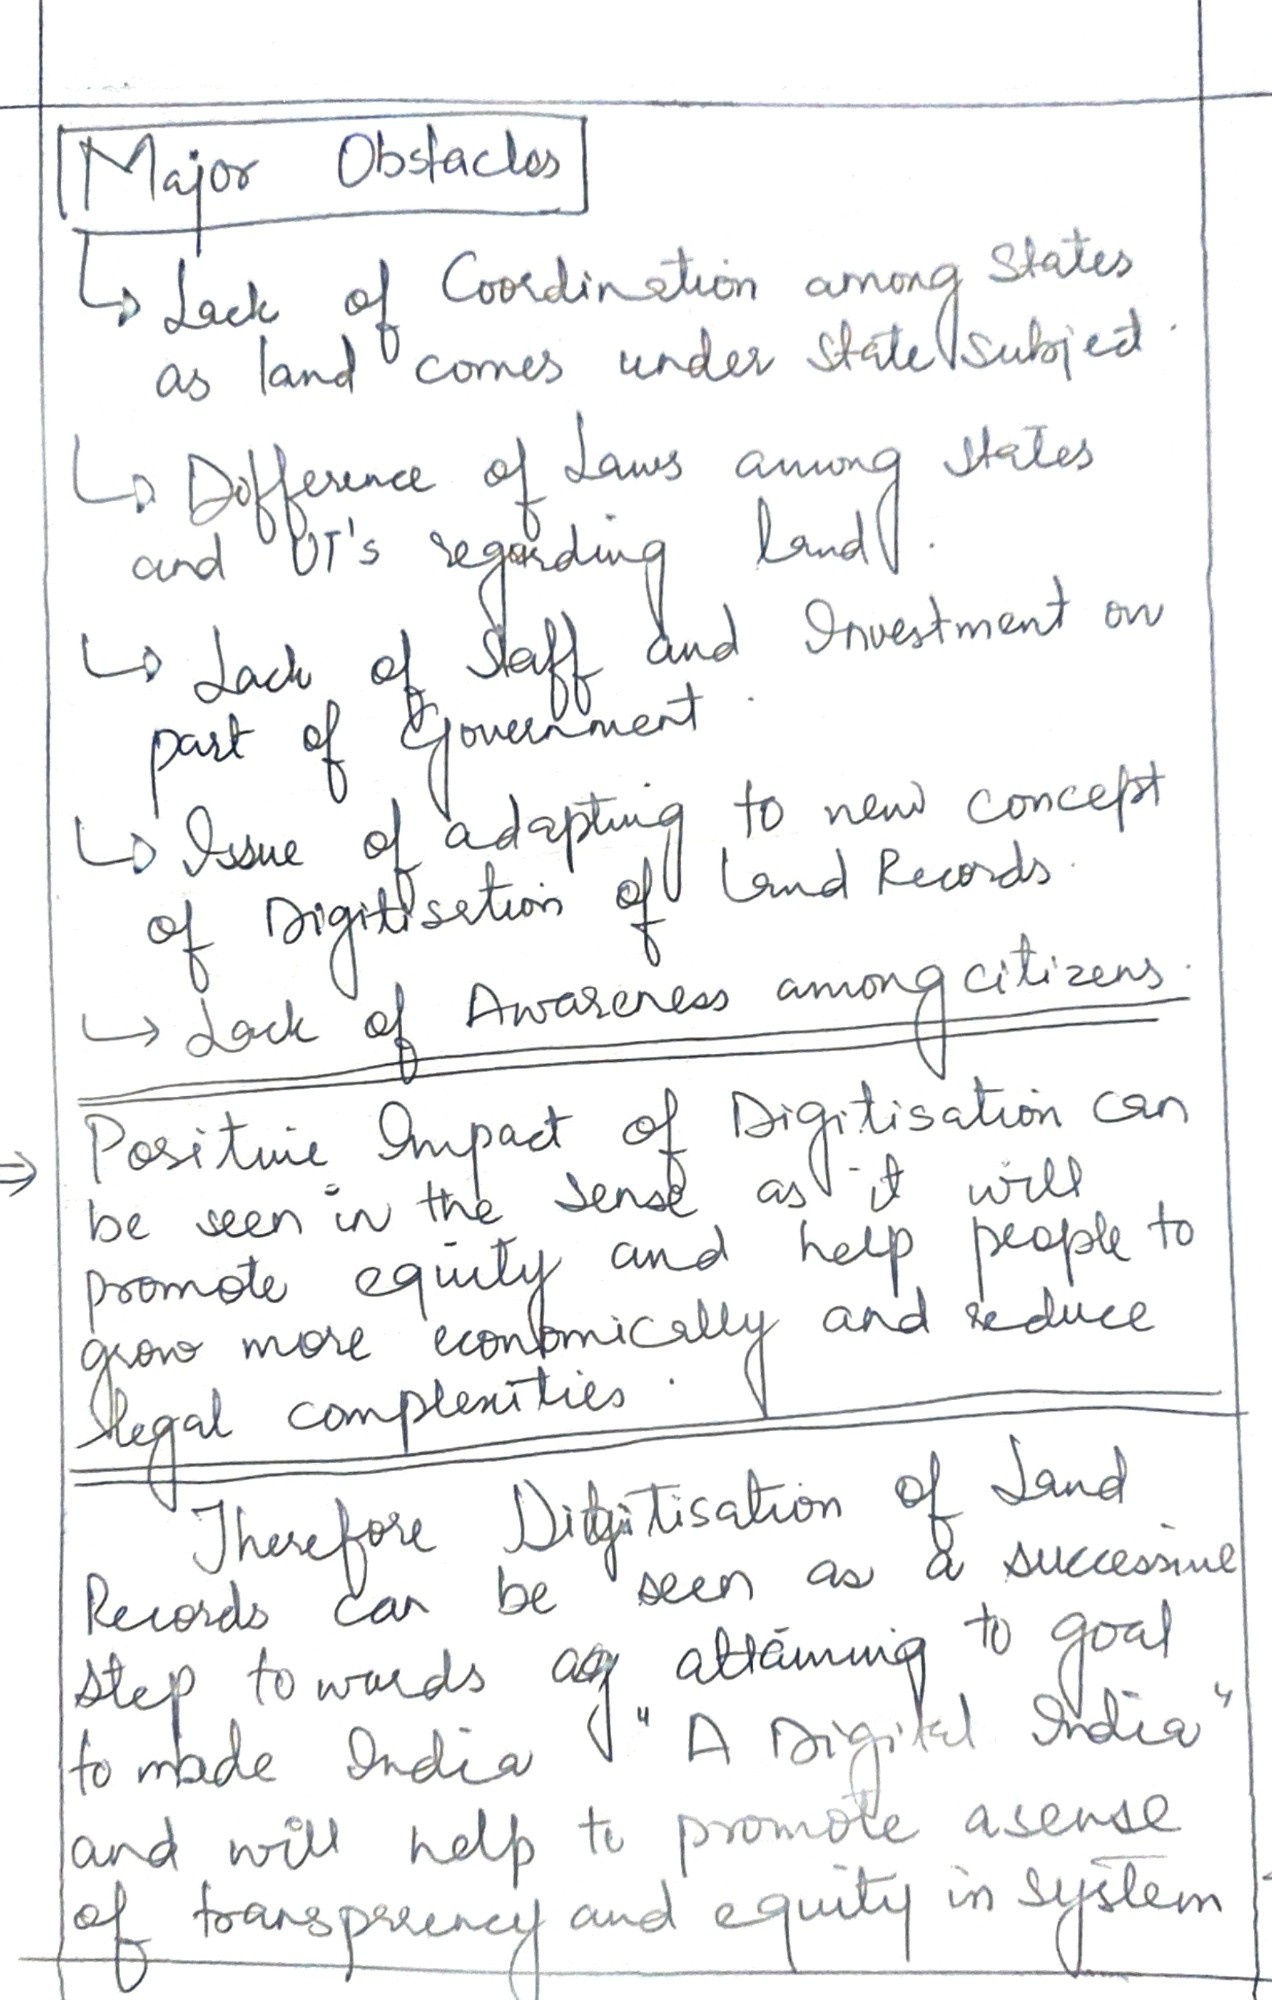 Major Obstacles
↳ Lack of Coordination among States
as land comes under State subject.
↳ Difference of Laws among states
and UT's regarding land.
↳ Lack of Staff and Investment on
part of Government.
↳ Issue of adapting to new concept
of Digitisation of Land Records.
↳ Lack of Awareness among citizens.
⇒ Positive Impact of Digitisation can
be seen in the sense as it will
promote equity and help people to
grow more economically and reduce
legal complexities.
Therefore Digitisation of Land
Records can be seen as a successive
step towards attaining to goal
to made India "A Digital India"
and will help to promote a sense
of transprrency and equity in system